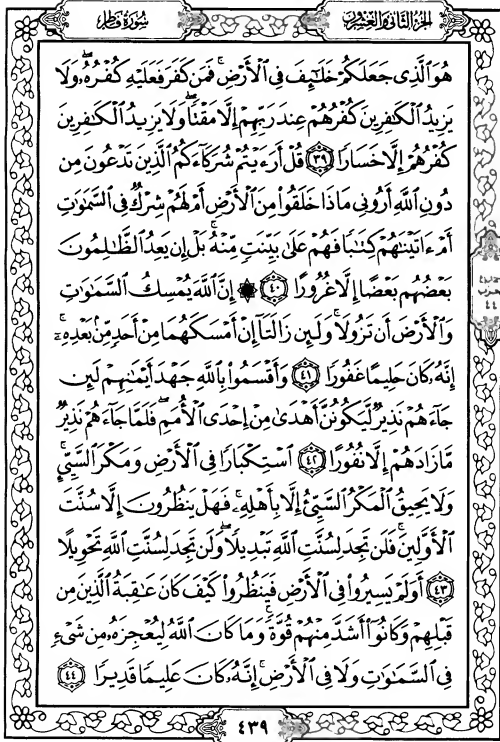 سورة فاطر
الجزء الثاني والعشرون
هُوَ ٱلَّذِى جَعَلَكُمْ خَلَـٰٓئِفَ فِى ٱلْأَرْضِ ۚ فَمَن كَفَرَ فَعَلَيْهِ كُفْرُهُۥ ۖ وَلَا
يَزِيدُ ٱلْكَـٰفِرِينَ كُفْرُهُمْ عِندَ رَبِّهِمْ إِلَّا مَقْتًا ۖ وَلَا يَزِيدُ ٱلْكَـٰفِرِينَ
كُفْرُهُمْ إِلَّا خَسَارًا ٣٩ قُلْ أَرَءَيْتُمْ شُرَكَآءَكُمُ ٱلَّذِينَ تَدْعُونَ مِن
دُونِ ٱللَّهِ أَرُونِى مَاذَا خَلَقُوا۟ مِنَ ٱلْأَرْضِ أَمْ لَهُمْ شِرْكٌ فِى ٱلسَّمَـٰوَٰتِ
أَمْ ءَاتَيْنَـٰهُمْ كِتَـٰبًا فَهُمْ عَلَىٰ بَيِّنَتٍ مِّنْهُ ۚ بَلْ إِن يَعِدُ ٱلظَّـٰلِمُونَ
بَعْضُهُم بَعْضًا إِلَّا غُرُورًا ٤٠ ۞ إِنَّ ٱللَّهَ يُمْسِكُ ٱلسَّمَـٰوَٰتِ
وَٱلْأَرْضَ أَن تَزُولَا ۚ وَلَئِن زَالَتَآ إِنْ أَمْسَكَهُمَا مِنْ أَحَدٍ مِّنۢ بَعْدِهِۦٓ ۚ
إِنَّهُۥ كَانَ حَلِيمًا غَفُورًا ٤١ وَأَقْسَمُوا۟ بِٱللَّهِ جَهْدَ أَيْمَـٰنِهِمْ لَئِن
جَآءَهُمْ نَذِيرٌ لَّيَكُونُنَّ أَهْدَىٰ مِنْ إِحْدَى ٱلْأُمَمِ ۖ فَلَمَّا جَآءَهُمْ نَذِيرٌ
مَّا زَادَهُمْ إِلَّا نُفُورًا ٤٢ ٱسْتِكْبَارًا فِى ٱلْأَرْضِ وَمَكْرَ ٱلسَّيِّئِ ۚ
وَلَا يَحِيقُ ٱلْمَكْرُ ٱلسَّيِّئُ إِلَّا بِأَهْلِهِۦ ۚ فَهَلْ يَنظُرُونَ إِلَّا سُنَّتَ
ٱلْأَوَّلِينَ ۚ فَلَن تَجِدَ لِسُنَّتِ ٱللَّهِ تَبْدِيلًا ۖ وَلَن تَجِدَ لِسُنَّتِ ٱللَّهِ تَحْوِيلًا
٤٣ أَوَلَمْ يَسِيرُوا۟ فِى ٱلْأَرْضِ فَيَنظُرُوا۟ كَيْفَ كَانَ عَـٰقِبَةُ ٱلَّذِينَ مِن
قَبْلِهِمْ وَكَانُوٓا۟ أَشَدَّ مِنْهُمْ قُوَّةً ۚ وَمَا كَانَ ٱللَّهُ لِيُعْجِزَهُۥ مِن شَىْءٍ
فِى ٱلسَّمَـٰوَٰتِ وَلَا فِى ٱلْأَرْضِ ۚ إِنَّهُۥ كَانَ عَلِيمًا قَدِيرًا ٤٤
٤٣٩